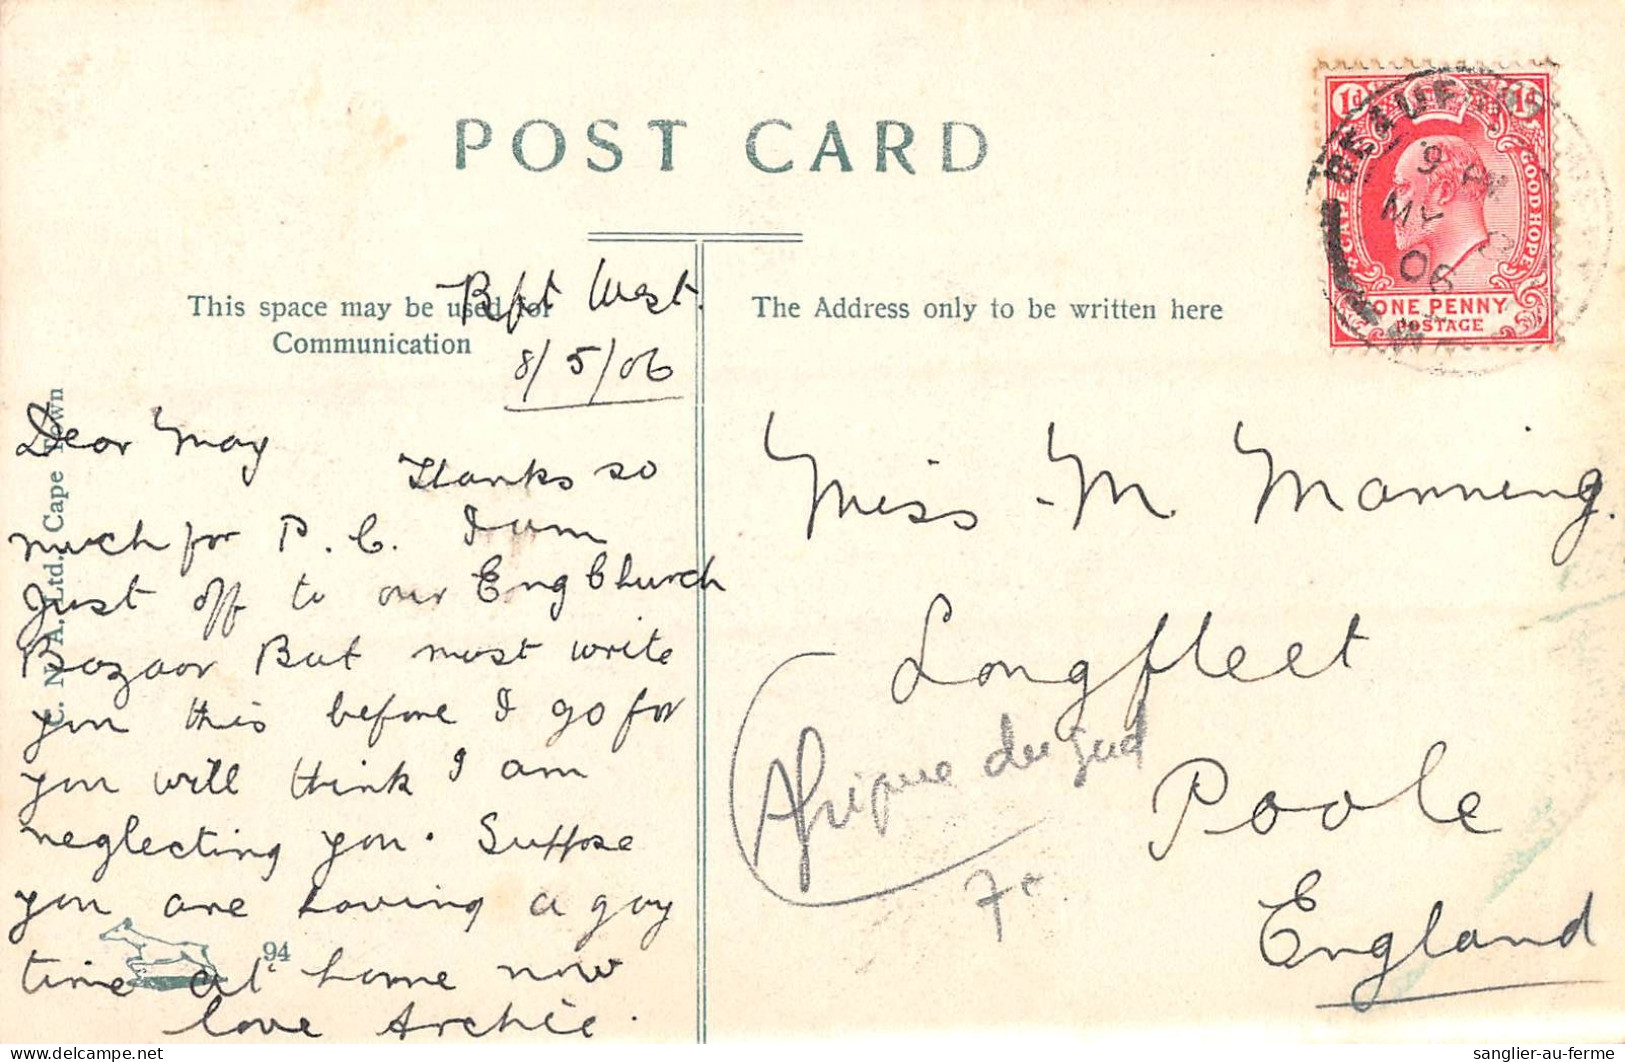 POST CARD
This space may be used for
Communication
The Address only to be written here
C. N. A. Ltd. Cape Town
94
Bft West.
8/5/06
Dear May
Thanks so
much for P. C. I am
Just off to our Eng Church
Bazaar But must write
you this before I go for
you will think I am
neglecting you. Suppose
you are having a gay
time at home now
love Archie.
Miss M Manning.
Longfleet
Poole
England
Afrique du Sud
7€
1d 1d
CAPE OF GOOD HOPE
ONE PENNY
POSTAGE
BEAUFORT
MY
06
sanglier-au-ferme